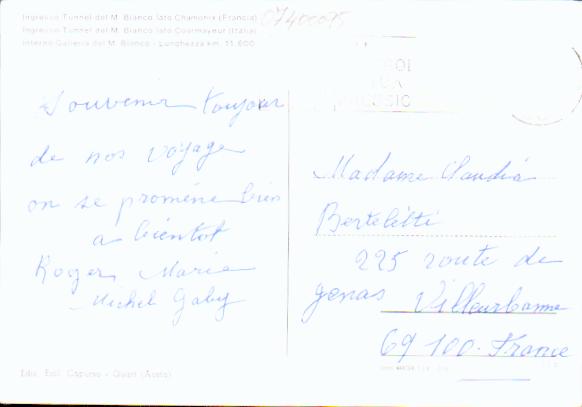 Ingresso Tunnel del M. Bianco lato Chamonix (Francia)
Ingresso Tunnel del M. Bianco lato Courmayeur (Italia)
Interno Galleria del M. Bianco - Lunghezza km. 11,600
07400095
Souvenir toujour
de nos voyage
on se promène bien
a bientot
Roger Marie
Michel Gaby
Madame Claudia
Bertelètti
225 route de
genas Villeurbanne
69 100. France